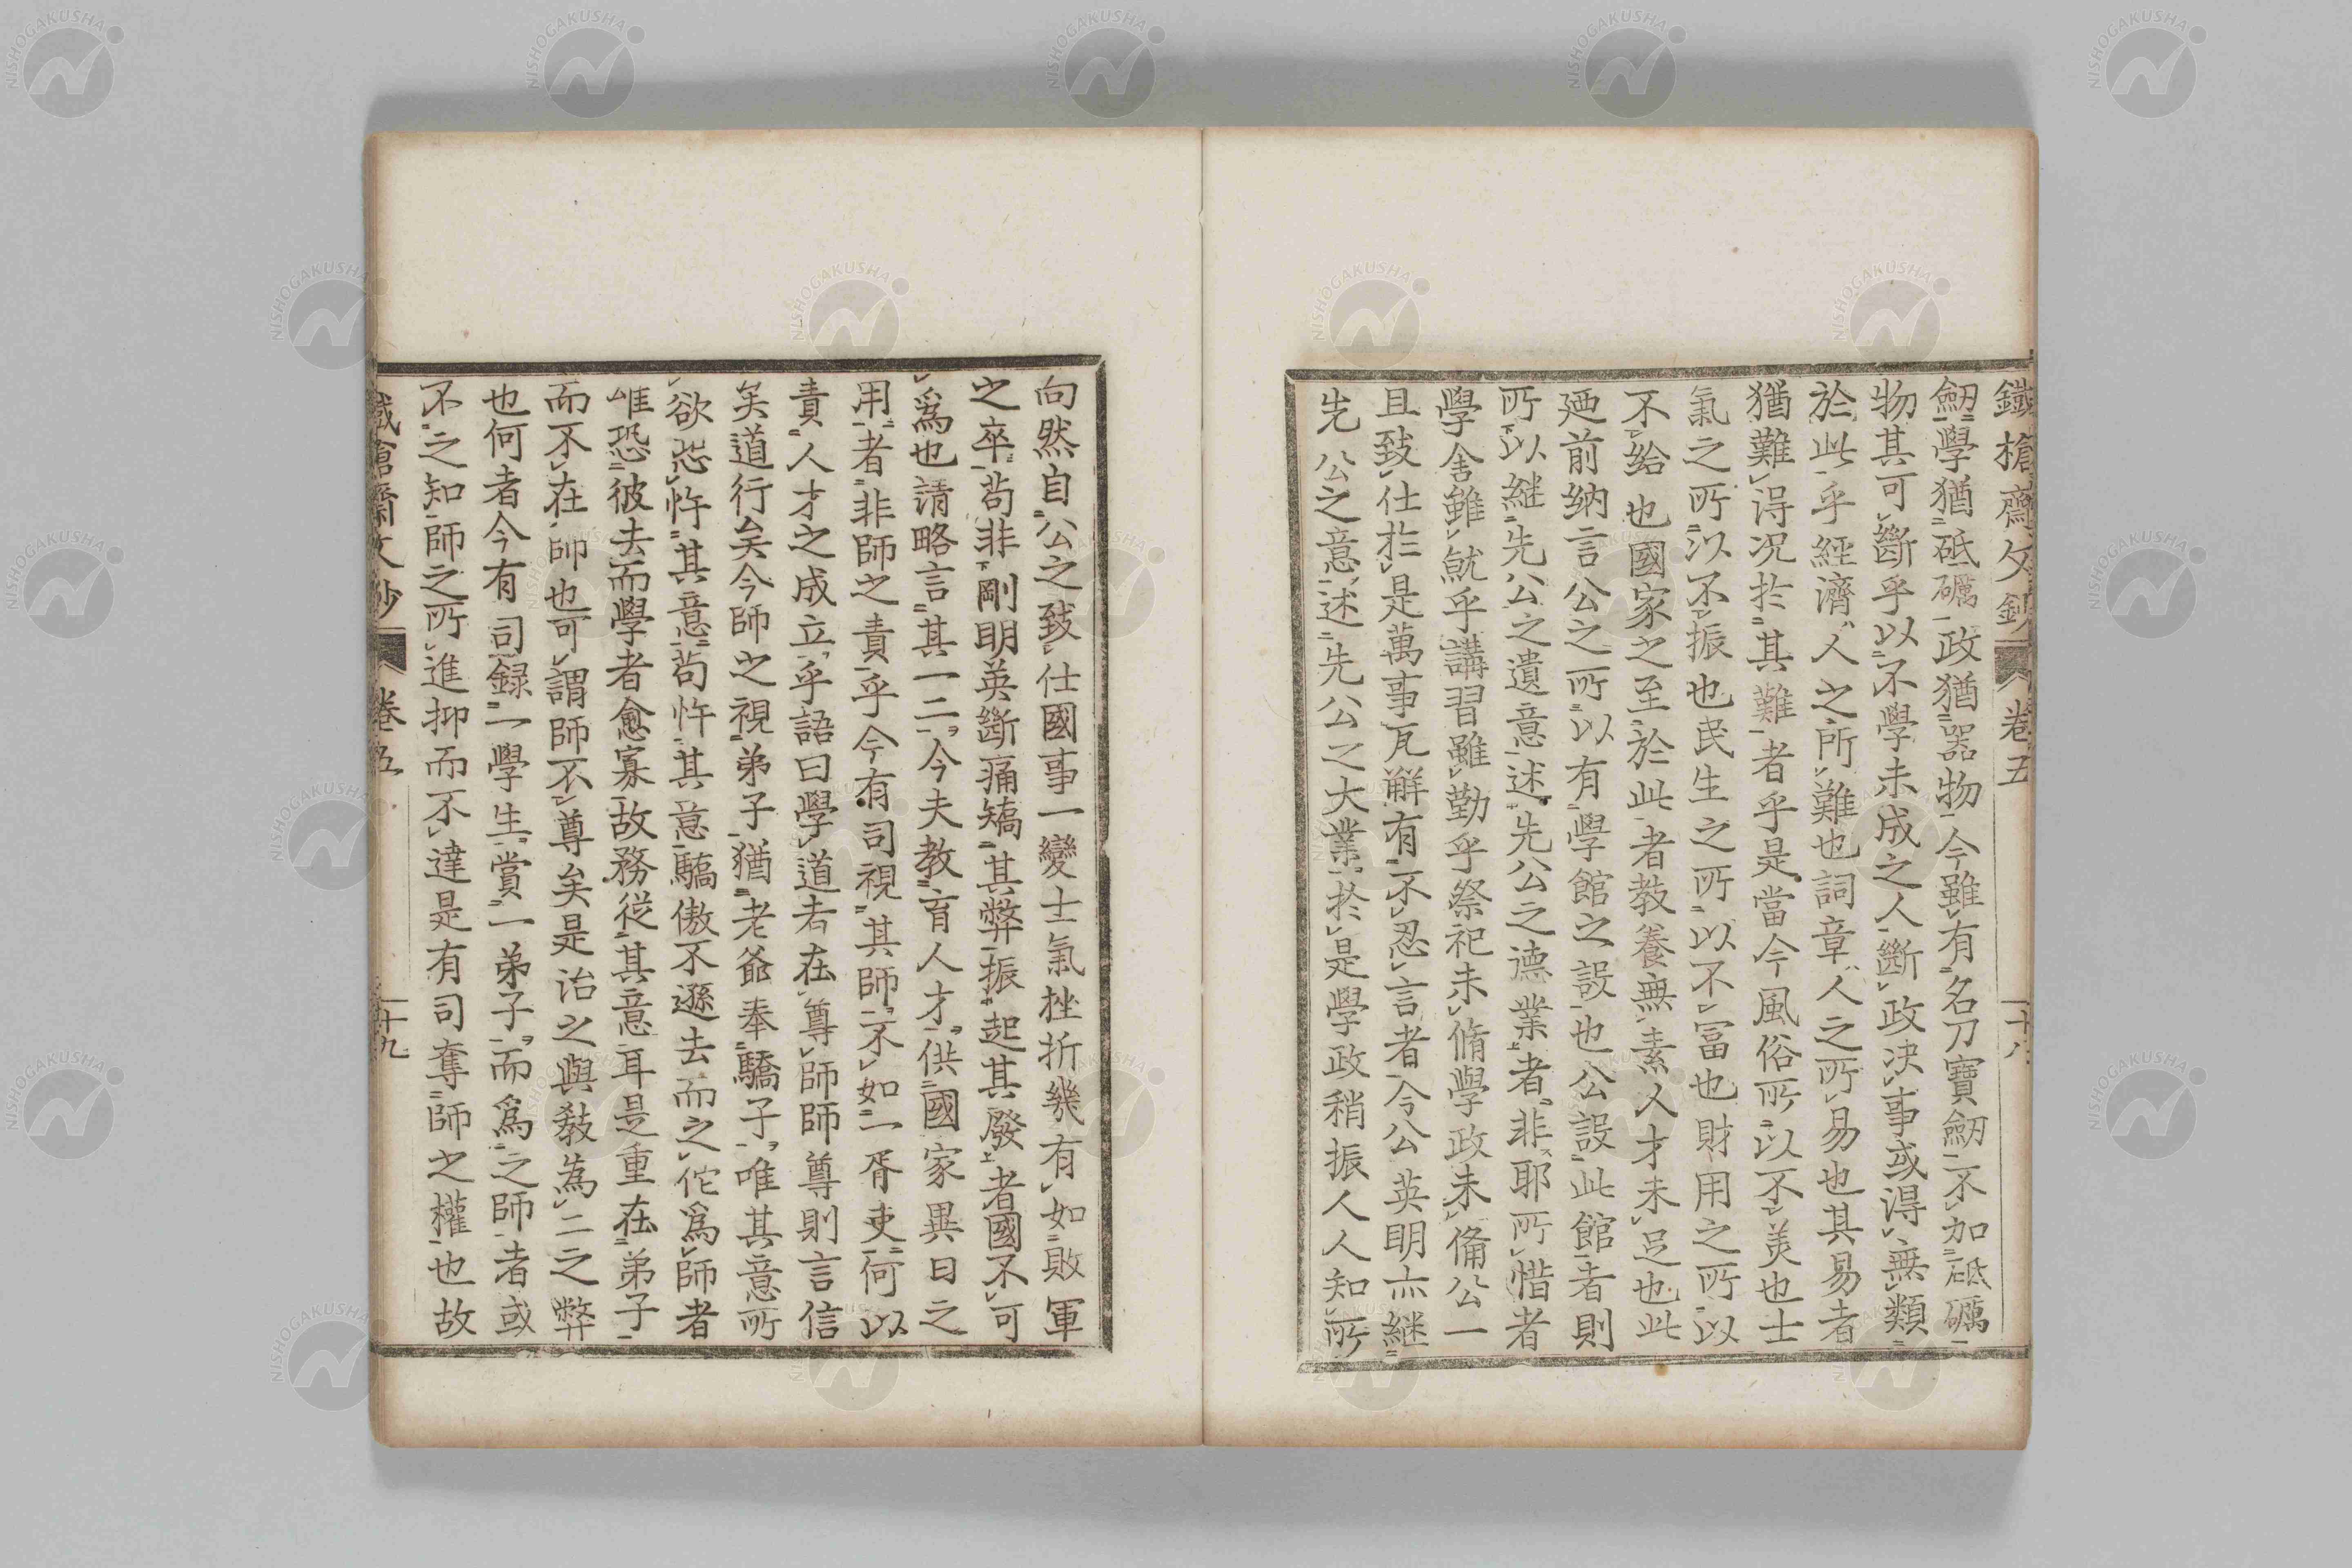 鐵槍齋文鈔 卷五 十八
劒學猶砥礪政猶器物今雖有名刀寶劒不加砥礪
物其可斷乎以不學未成之人斷政决事或得無類
於此乎經濟人之所難也詞章人之所易也其易者
猶難得况於其難者乎是當今風俗所以不美也士
氣之所以不振也民生之所以不冨也財用之所以
不給也國家之至於此者教養無素人才未足也此
廼前納言公之所以有學館之設也公設此館者則
所以継先公之遺意述先公之德業者非耶所惜者
學舍雖就乎講習雖勤乎祭祀未脩學政未備公一
且致仕於是萬事瓦觧有不忍言者今公英明亦継
先公之意述先公之大業於是學政稍振人人知所
向然自公之致仕國事一變士氣挫折幾有如敗軍
之卒苟非剛明英斷痛矯其弊振起其廢者國不可
爲也請略言其一二今夫教育人才供國家異日之
用者非師之責乎今有司視其師不如一胥吏何以
責人才之成立乎語曰學道者在尊師師尊則言信
矣道行矣今師之視弟子猶老爺奉驕子唯其意所
欲恐忤其意苟忤其意驕傲不遜去而之佗爲師者
唯恐彼去而學者愈寡故務從其意耳是重在弟子
而不在師也可謂師不尊矣是治之與教為二之弊
也何者今有司録一學生賞一弟子而爲之師者或
不之知師之所進抑而不達是有司奪師之權也故
鐵槍齋文鈔 卷五 十九
NISHOGAKUSHA